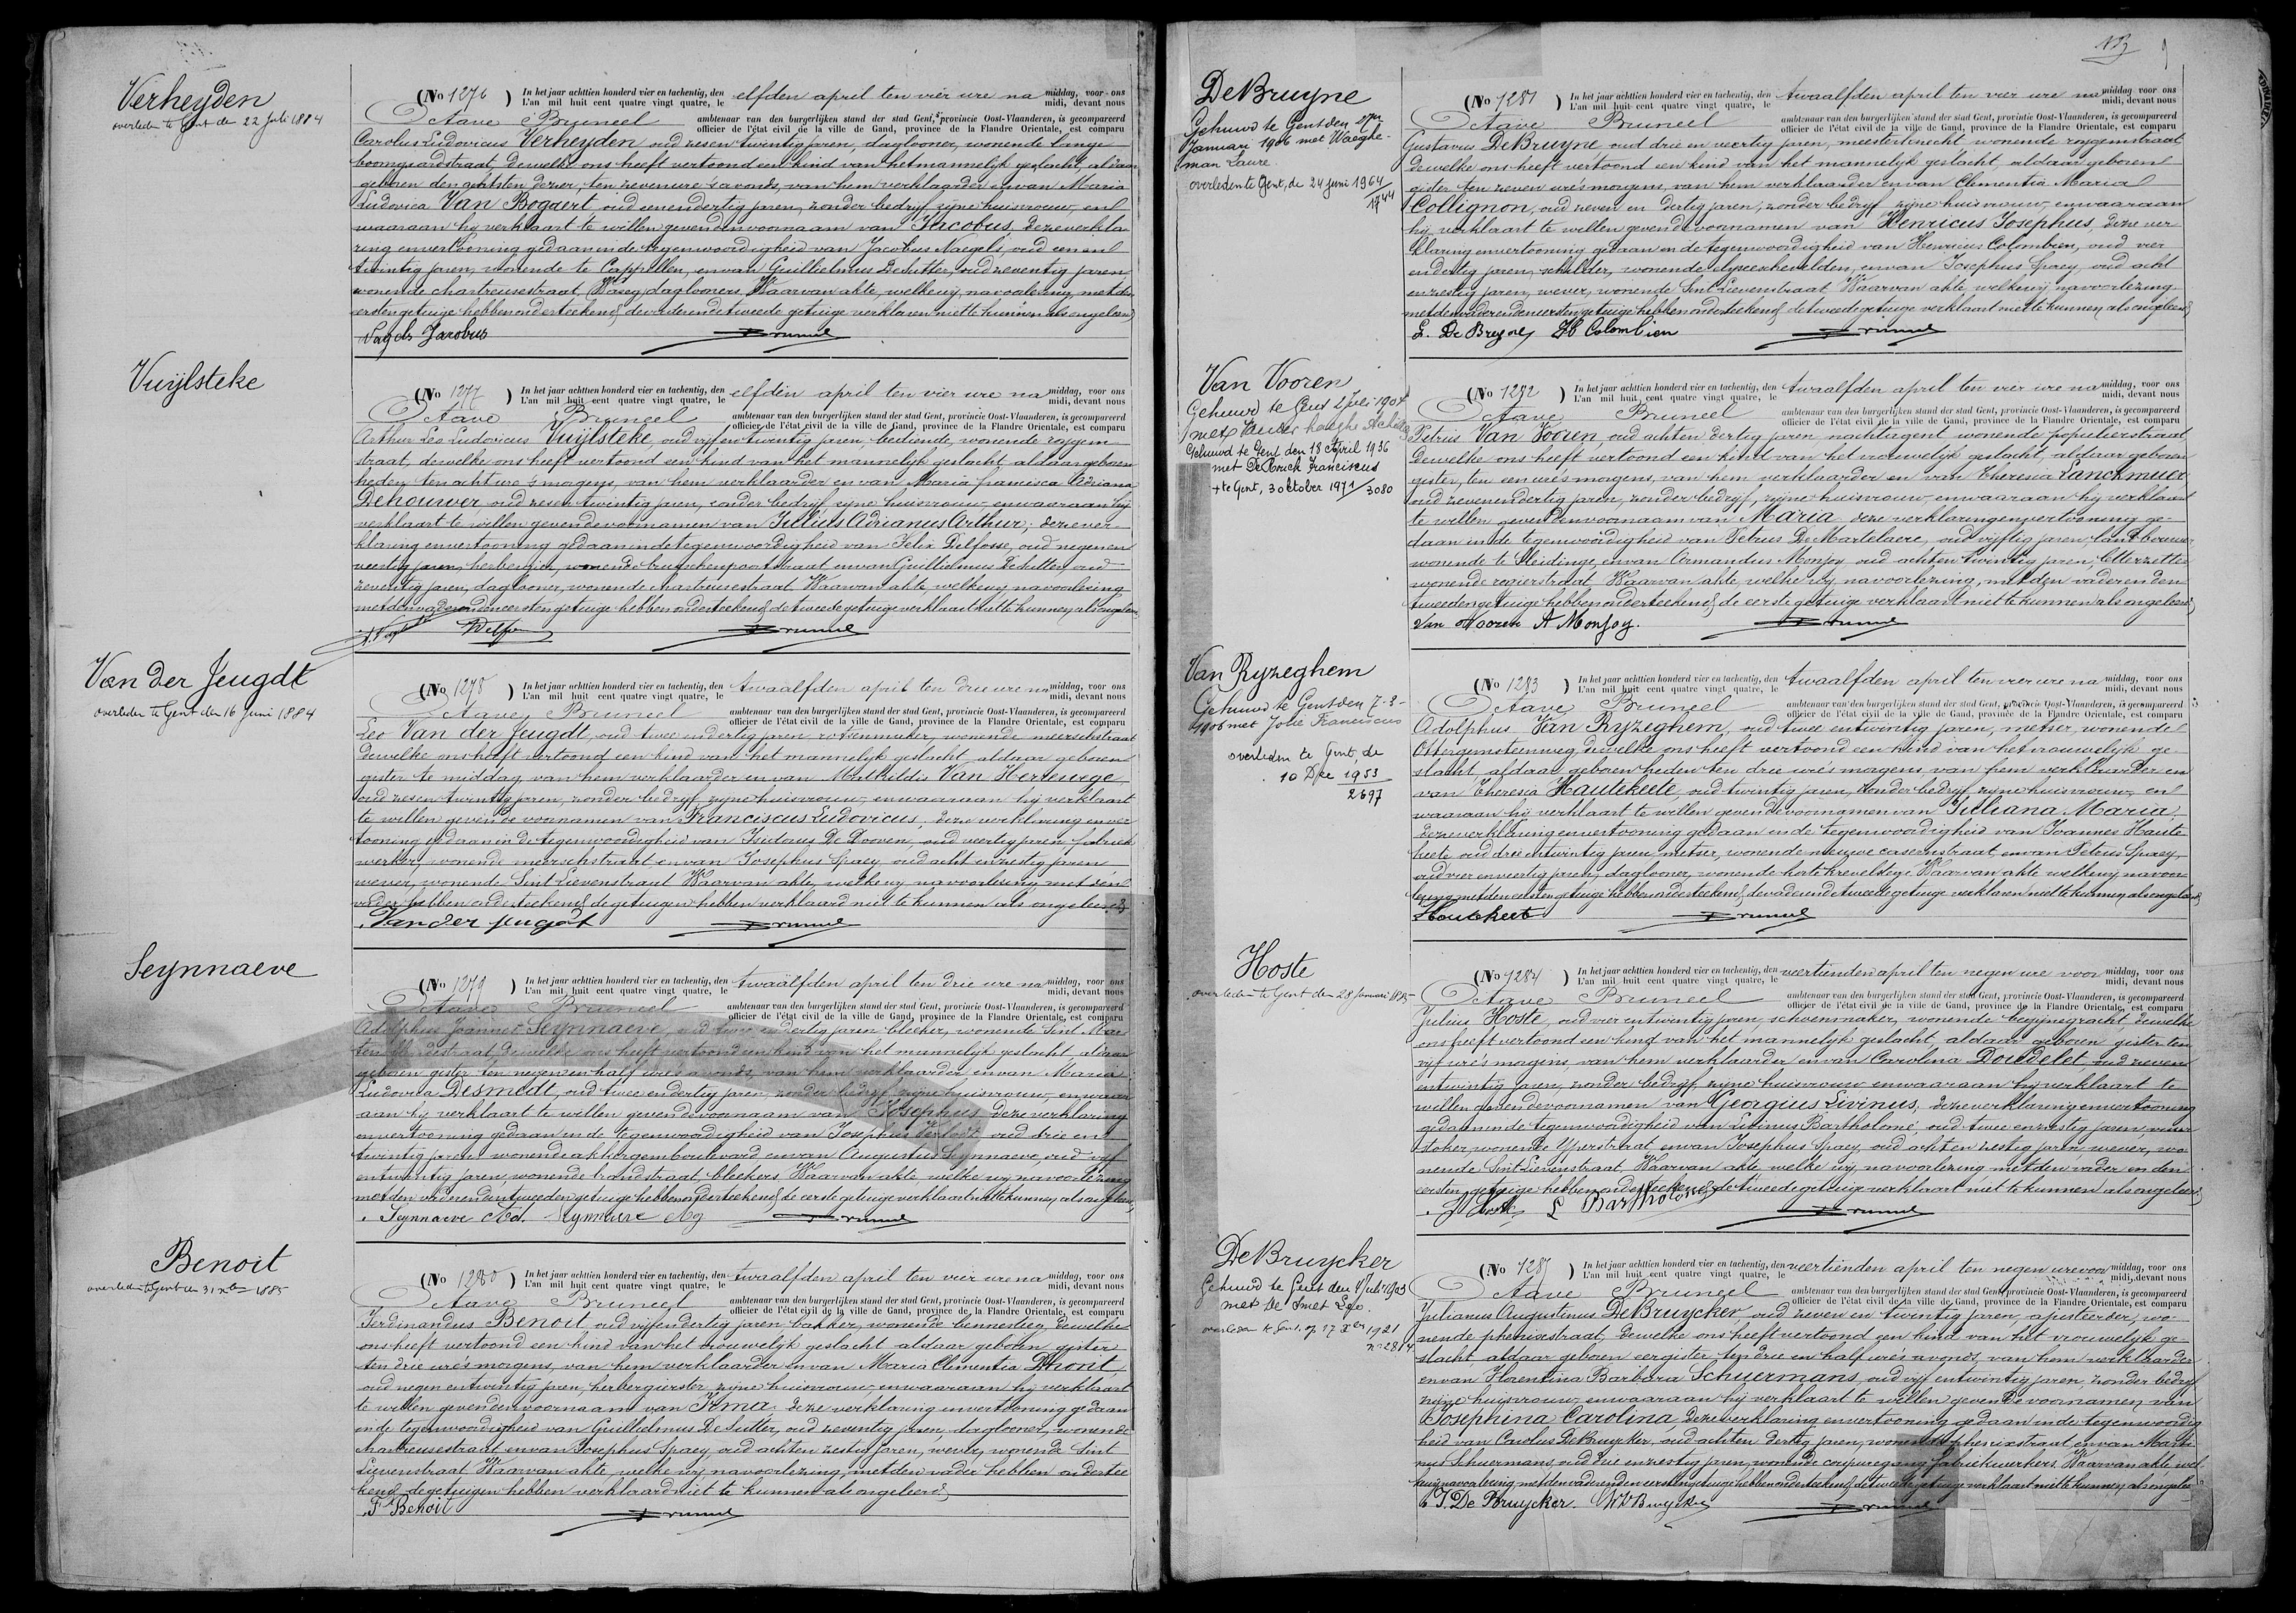 Verheyden
overleden te Gent den 22 Juli 1884
(No 1276) In het jaar achttien honderd vier en tachentig, den elfden april ten vier ure na middag, voor ons
L'an mil huit cent quatre vingt quatre, le midi, devant nous
Octave Bruneel ambtenaar van den burgerlijken stand der stad Gent, provincie Oost-Vlaanderen, is gecompareerd
officier de l'état civil de la ville de Gand, province de la Flandre Orientale, est comparu
Carolus Ludovicus Verheyden oud zesentwintig jaren, daglooner, wonende lange
boomgaardstraat, dewelke ons heeft vertoond een kind van het mannelyk geslacht, aldaar
geboren den achtsten dezer, ten zeven ure 's avonds, van hem verklaarder en van Maria
Ludovica Van Bogaert oud eenendertig jaren, zonder bedryf, zyne huisvrouw, en
waaraan hy verklaart te willen geven den voornaam van Jacobus, deze verkla-
ring en vertooning gedaan in de tegenwoordigheid van Jacobus Nagels, oud een en
twintig jaren, wonende te Cappellen, en van Guillielmus De Sutter, oud zeventig jaren
wonende chartreusestraat, daglooners. Waarvan akte, welke wy, na voorlezing, met den
eersten getuige hebben onderteekend, de vader en de tweede getuige verklaren niet te kunnen als ongeleerd
Nagels Jacobus Bruneel
Vuijlsteke
(No 1277) In het jaar achttien honderd vier en tachentig, den elfden april ten vier ure na middag, voor ons
L'an mil huit cent quatre vingt quatre, le midi, devant nous
Octave Bruneel ambtenaar van den burgerlijken stand der stad Gent, provincie Oost-Vlaanderen, is gecompareerd
officier de l'état civil de la ville de Gand, province de la Flandre Orientale, est comparu
Arthur Leo Ludovicus Vuijlsteke, oud vyf en twintig jaren, bediende, wonende roggem
straat, dewelke ons heeft vertoond een kind van het mannelyk geslacht aldaar geboren
heden ten acht ure 's morgens, van hem verklaarder en van Maria francisca Adriana
Dehouwer, oud zesen twintig jaren, zonder bedryf, zyne huisvrouw en waaraan hy
verklaart te willen geven de voornamen van Julius Adrianus Arthur; deze ver
klaring en vertooning gedaan in de tegenwoordigheid van Felix Delfosse, oud negen en
veertig jaren, herbergier, wonende brusschenpoortstraat en van Guillielmus De Sutter, oud
zeventig jaren, daglooner, wonende chartreusestraat. Waarvan akte, welke wy, na voorlezing
met den vader en den eersten getuige hebben onderteekend, de tweede getuige verklaart niet te kunnen, als ongeleerd
Bruneel
Van der Jeugdt
overleden te Gent den 16 Juni 1884
(No 1278) In het jaar achttien honderd vier en tachentig, den twaalfden april ten drie ure na middag, voor ons
L'an mil huit cent quatre vingt quatre, le midi, devant nous
Octave Bruneel ambtenaar van den burgerlijken stand der stad Gent, provincie Oost-Vlaanderen, is gecompareerd
officier de l'état civil de la ville de Gand, province de la Flandre Orientale, est comparu
Leo Van der Jeugdt, oud twee en dertig jaren, wonende meerschstraat
dewelke ons heeft vertoond een kind van het mannelyk geslacht aldaar geboren
gister te middag, van hem verklaarder en van Mathildis Van Herrewege,
oud zesen twintig jaren, zonder bedryf, zyne huisvrouw, en waaraan hy verklaart
te willen geven de voornamen van Franciscus Ludovicus, deze verklaring en ver
tooning gedaan in de tegenwoordigheid van Isidorus De Dooven, oud veertig jaren, fabriek
werker, wonende meerschstraat en van Josephus Spaey, oud acht en zestig jaren
wever, wonende Sint Lievenstraat. Waarvan akte, welke wy na voorlezing, met den
vader hebben onderteekend, de getuigen hebben verklaard niet te kunnen als ongeleerd
Vander Jeugdt Bruneel
Seynnaeve
(No 1279) In het jaar achttien honderd vier en tachentig, den twaalfden april ten drie ure na middag, voor ons
L'an mil huit cent quatre vingt quatre, le midi, devant nous
Octave Bruneel ambtenaar van den burgerlijken stand der stad Gent, provincie Oost-Vlaanderen, is gecompareerd
officier de l'état civil de la ville de Gand, province de la Flandre Orientale, est comparu
Adolphus Joannes Seynnaeve, oud twee en dertig jaren bleeker, wonende Sint Mar-
dewelke ons heeft vertoond een kind van het mannelyk geslacht, aldaar
geboren gister ten negen en half ure 's avonds, van hem verklaarder en van Maria
Ludovica Desmedt, oud twee en dertig jaren, zonder bedryf zyne huisvrouw, en waar
aan hy verklaart te willen geven de voornaam van Josephus deze verklaring
en vertooning gedaan in de tegenwoordigheid van Josephus oud drie en
twintig jaren wonende akkergemboulevard en van Augustus Seynnaeve, oud vyf
en twintig jaren, wonende brandstraat, bleekers. Waarvan akte, welke wy, na voorlezing
met den vader en den tweeden getuige hebben onderteekend, de eerste getuige verklaart niet te kunnen, als ongeleerd
Seynnaeve Ad. Seynnaeve Aug Bruneel
Benoit
overleden te Gent den 31 xber 1885
(No 1280) In het jaar achttien honderd vier en tachentig, den twaalfden april ten vier ure na middag, voor ons
L'an mil huit cent quatre vingt quatre, le midi, devant nous
Octave Bruneel ambtenaar van den burgerlijken stand der stad Gent, provincie Oost-Vlaanderen, is gecompareerd
officier de l'état civil de la ville de Gand, province de la Flandre Orientale, est comparu
Ferdinandus Benoit oud vyf en dertig jaren bakker, wonende bennesteeg, dewelke
ons heeft vertoond een kind van het vrouwelyk geslacht aldaar geboren gister
ten drie ure 's morgens, van hem verklaarder en van Maria Clementia Dhont,
oud negen en twintig jaren, herbergierster, zyne huisvrouw, en waaraan hy verklaart
te willen geven den voornaam van Irma. deze verklaring en vertooning gedaan
in de tegenwoordigheid van Guillielmus De Sutter, oud zeventig jaren, daglooner, wonende
chartreusestraat en van Josephus Spaey, oud acht en zestig jaren, wever, wonende Sint
Lievenstraat. Waarvan akte, welke wy, na voorlezing, met den vader hebben onderteе
kend, de getuigen hebben verklaard niet te kunnen als ongeleerd
F Benoit Bruneel
De Bruyne
Gehuwd te Gent den
Januari 1906 met Waeghe-
man Laure
overleden te Gent, de 24 juni 1964
1744
(No 1281) In het jaar achttien honderd vier en tachentig, den twaalfden april ten vier ure na middag voor ons
L'an mil huit cent quatre vingt quatre, le midi, devant nous
Octave Bruneel ambtenaar van den burgerlijken stand der stad Gent, provincie Oost-Vlaanderen, is gecompareerd
officier de l'état civil de la ville de Gand, province de la Flandre Orientale, est comparu
Gustavus De Bruyne oud drie en veertig jaren, meesterknecht wonende roggemstraat
dewelke ons heeft vertoond een kind van het mannelyk geslacht, aldaar geboren
gister ten zeven ure 's morgens, van hem verklaarder en van Clementia Maria
Collignon, oud zeven en dertig jaren, zonder bedryf zyne huisvrouw, en waaraan
hy verklaart te willen geven de voornamen van Henricus Josephus, deze ver
klaring en vertooning gedaan in de tegenwoordigheid van Henricus Colombien, oud vier
en dertig jaren, schilder, wonende elyzeeschevelden, en van Josephus Spaey, oud acht
en zestig jaren, wever, wonende Sint Lievenstraat. Waarvan akte, welke wy na voorlezing
met den vader en den eersten getuige hebben onderteekend, de tweede getuige verklaart niet te kunnen, als ongeleerd
De Bruyne Colombien Bruneel
Van Vooren
Gehuwd te Gent 2 Juli 1904
met
Gehuwd te Gent den 18 April 1936
met De Conick Franciscus
+ te Gent, 3 oktober 1971/3080
(No 1282) In het jaar achttien honderd vier en tachentig, den twaalfden april ten vier ure na middag, voor ons
L'an mil huit cent quatre vingt quatre, le midi, devant nous
Octave Bruneel ambtenaar van den burgerlijken stand der stad Gent, provincie Oost-Vlaanderen, is gecompareerd
officier de l'état civil de la ville de Gand, province de la Flandre Orientale, est comparu
Petrus Van Vooren, oud acht en dertig jaren nachtagent wonende populierstraat,
dewelke ons heeft vertoond een kind van het vrouwelyk geslacht, aldaar geboren
gister, ten een ure 's morgens, van hem verklaarder en van Theresia Lanckmuer,
oud zeven en dertig jaren, zonder bedryf, zyne huisvrouw, en waaraan hy verklaart
te willen geven den voornaam van Maria. deze verklaring en vertooning ge-
daan in de tegenwoordigheid van Petrus De Martelaere, oud vyftig jaren, landbouwer
wonende te Sleidinge, en van Armandus Monjoy oud acht en twintig jaren, letterzetter
wonende rogierstraat. Waarvan akte, welke wy, na voorlezing, met den vader en den
tweeden getuige hebben onderteekend, de eerste getuige verklaart niet te kunnen als ongeleerd
Van Vooren A Monjoy. Bruneel
Van Ryzeghem
Gehuwd te Gent den 7-3-
1908 met Jolie Franciscus
overleden te Gent, de
10 Dec 1953
2697
(No 1283) In het jaar achttien honderd vier en tachentig, den twaalfden april ten vier ure na middag, voor ons
L'an mil huit cent quatre vingt quatre, le midi, devant nous
Octave Bruneel ambtenaar van den burgerlijken stand der stad Gent, provincie Oost-Vlaanderen, is gecompareerd
officier de l'état civil de la ville de Gand, province de la Flandre Orientale, est comparu
Adolphus Van Ryzeghem, oud twee en twintig jaren, metser, wonende
Ottergemsteenweg dewelke ons heeft vertoond een kind van het vrouwelyk ge-
slacht, aldaar geboren heden ten drie ure 's morgens, van hem verklaarder en
van Theresia Hautekeete, oud twintig jaren, zonder bedryf, zyne huisvrouw, en
waaraan hy verklaart te willen geven de voornamen van Juliana Maria,
deze verklaring en vertooning gedaan in de tegenwoordigheid van Joannes Haute
keete, oud drie en twintig jaren, metser, wonende nieuwe caseernstraat, en van Petrus Spaey,
oud vier en veertig jaren, daglooner, wonende korte krevelstege. Waarvan akte welke wy, na voor
lezing met den eersten getuige hebben onderteekend, de vader en de tweede getuige verklaren niet te kunnen, als ongeleerd
Hautekeet Bruneel
Hoste
overleden te Gent den 28 Januari 1885
(No 1284) In het jaar achttien honderd vier en tachentig, den veertienden april ten negen ure voor middag, voor ons
L'an mil huit cent quatre vingt quatre, le midi, devant nous
Octave Bruneel ambtenaar van den burgerlijken stand der stad Gent, provincie Oost-Vlaanderen, is gecompareerd
officier de l'état civil de la ville de Gand, province de la Flandre Orientale, est comparu
Julius Hoste, oud vier en twintig jaren, schoenmaker, wonende begijnegracht, dewelke
ons heeft vertoond een kind van het mannelyk geslacht, aldaar geboren gister ten
vyf ure 's morgens, van hem verklaarder en van Carolina Doudelet, oud zeven
en twintig jaren, zonder bedryf, zyne huisvrouw en waaraan hy verklaart te
willen geven de voornamen van Georgius Livinus, deze verklaring en vertooning
gedaan in de tegenwoordigheid van Livinus Bartholomé, oud twee en zestig jaren, vuur
stoker, wonende Yperstraat, en van Josephus Spaey, oud acht en zestig jaren, wever, wo-
nende Sint Lievenstraat, Waarvan akte, welke wy, na voorlezing met den vader en den
eersten getuige hebben onderteekend, de tweede getuige verklaart niet te kunnen als ongeleerd
J Hoste L Bartholomé Bruneel
De Bruycker
Gehuwd te Gent den 4 Juli 1903
met De Smet
overleden te Gent, op 17 Xber 1921
n° 2814
(No 1285) In het jaar achttien honderd vier en tachentig, den veertienden april ten negen ure voor middag, voor ons
L'an mil huit cent quatre vingt quatre, le midi, devant nous
Octave Bruneel ambtenaar van den burgerlijken stand der stad Gent, provincie Oost-Vlaanderen, is gecompareerd
officier de l'état civil de la ville de Gand, province de la Flandre Orientale, est comparu
Julianus Augustinus De Bruycker, oud zeven en twintig jaren, wo-
nende phenixstraat, dewelke ons heeft vertoond een kind van het vrouwelyk ge-
slacht aldaar geboren eergister ten drie en half ure 's avonds, van hem verklaarder
en van Florentina Barbara Schuermans, oud vyf en twintig jaren, zonder bedryf
zyne huisvrouw, en waaraan hy verklaart te willen geven de voornamen van
Josephina Carolina, deze verklaring en vertooning gedaan in de tegenwoordig
heid van Carolus De Bruycker, oud acht en dertig jaren, wonende phenixstraat, en van
Schuermans, oud drie en zestig jaren, wonende coupuregang, fabriekwerkers. Waarvan akte, wel-
ke wy, na voorlezing, met den vader en den eersten getuige hebben onderteekend, de tweede getuige verklaart niet te kunnen, als ongeleerd
J. De Bruycker. De Bruycker Bruneel